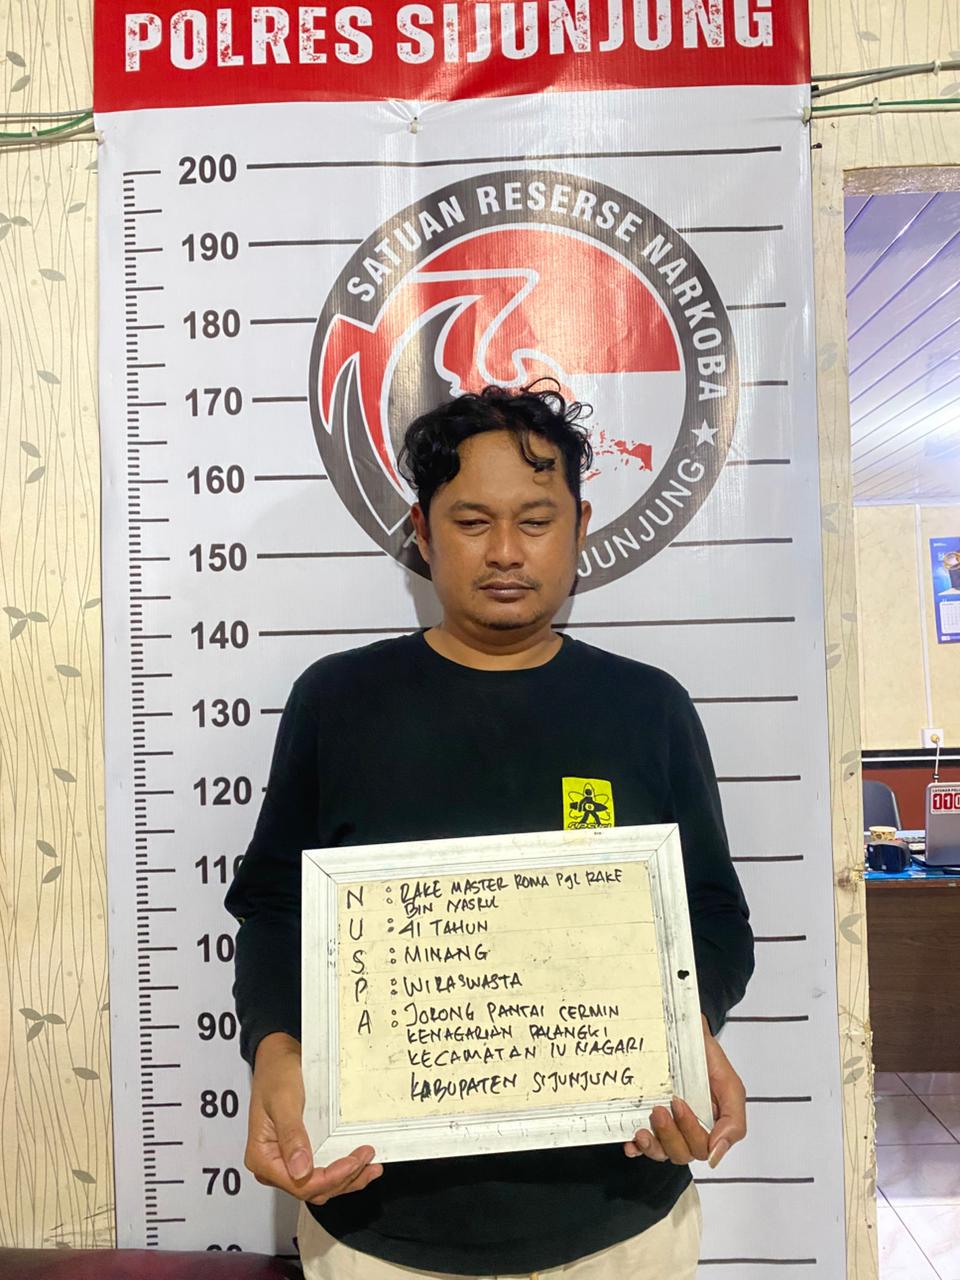 POLRES SIJUNJUNG
SATUAN RESERSE NARKOBA
JUNJUNG
200
190
180
170
160
150
140
130
120
110
100
90
80
70
N : RAKE MASTER ROMA Pgl RAKE
BIN NASRUL
U : 41 TAHUN
S : MINANG
P : WIRASWASTA
A : JORONG PANTAI CERMIN
KENAGARIAN PALANGKI
KECAMATAN IV NAGARI
KABUPATEN SIJUNJUNG
110